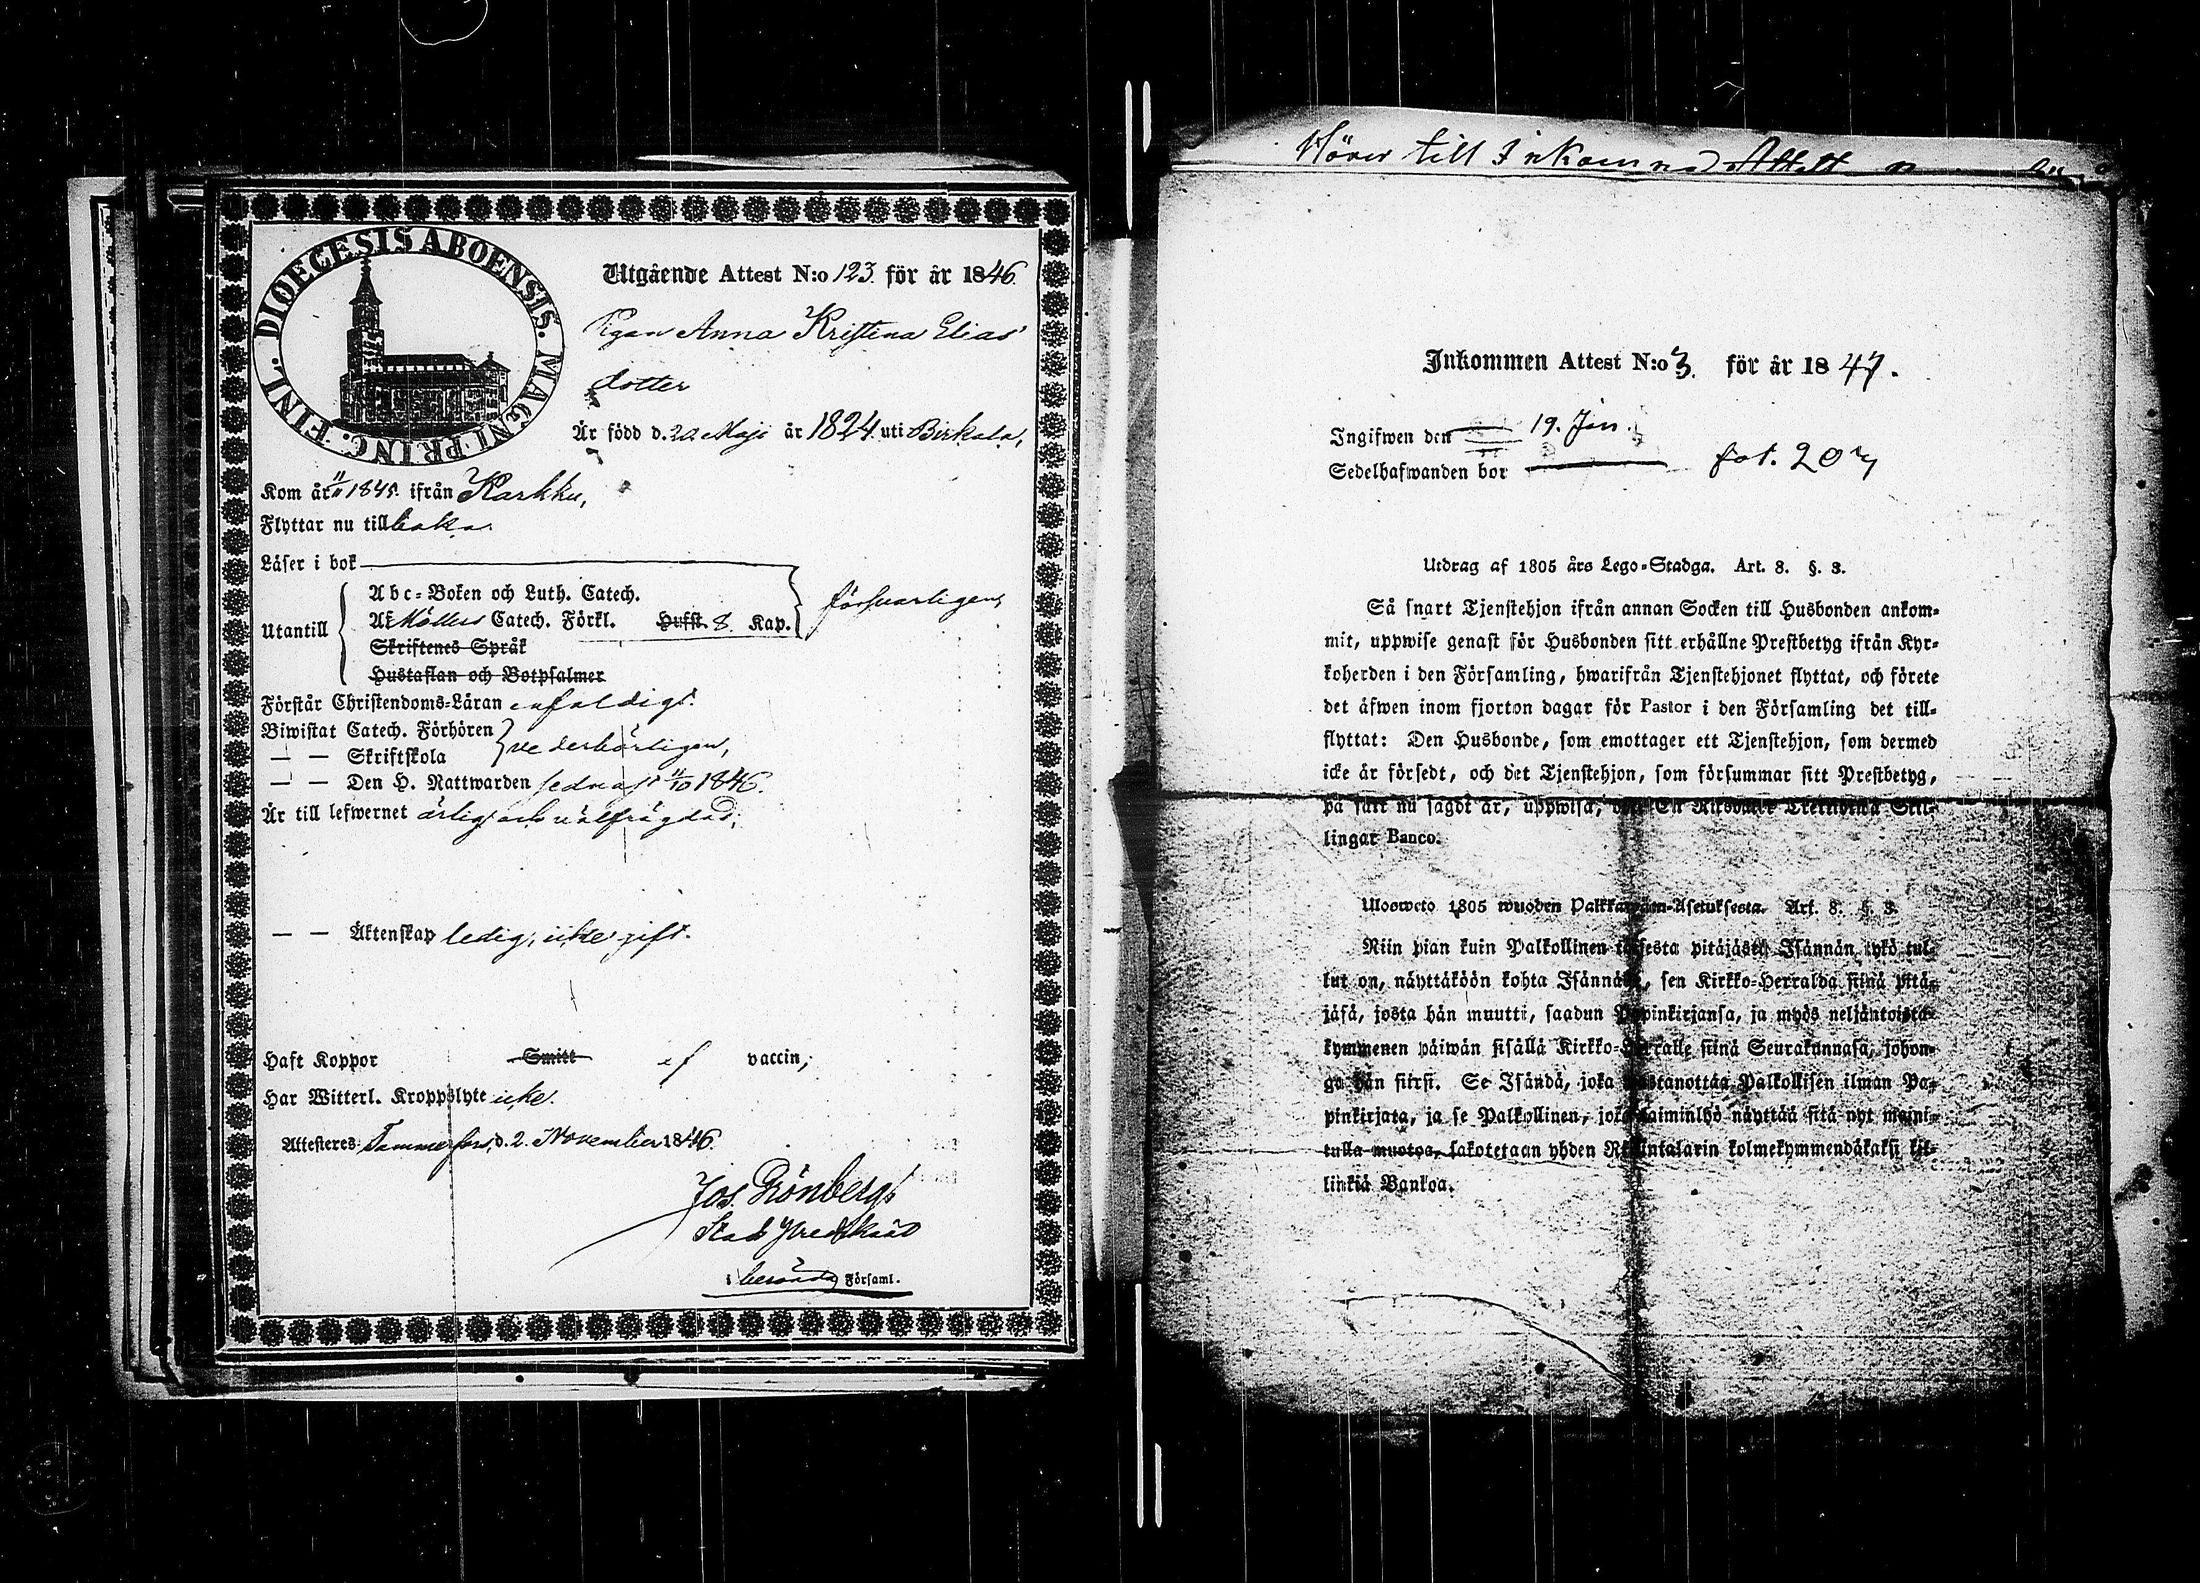 DIOECESIS ABOENSIS. MAGNI PRINC. FINL.
Utgående Attest N:o 123. för år 1846.
Pigan Anna Kristina Elias
dotter
Är född d. 20. Maji år 1824. uti Birkala,
Kom år 1845. ifrån Karkku,
Flyttar nu tillbaka.
Läser i bok
Utantill
Abc-Boken och Luth. Catech.
Af Möllers Catech. Förkl. Hufst. 8. Kap.
försvarligen,
Skriftenes Språk
Hustaflan och Botpsalmer
Förstår Christendoms-Läran enfaldigt.
Biwistat Catech. Förhören
— — Skriftskola
vederbörligen,
— — Den H. Nattwarden sednast 4/10 1846.
Är till lefwernet ärlig och välfrägdad;
— — Äktenskap ledig, icke gift.
Haft Koppor Smitt ef vaccin,
Har Witterl. Kroppslyte icke.
Attesteres Tammerfors, d. 2. November 1846.
Jos. Grönberg
i berörda Församl.
Hörer till Inkomna Attest
Inkommen Attest N:o 3. för år 1847.
Ingifwen den 19. Jan.
Sedelhafwanden bor fol. 207
Utdrag af 1805 års Lego-Stadga. Art. 8. §. 3.
Så snart Tjenstehjon ifrån annan Socken till Husbonden ankom-
mit, uppwise genast för Husbonden sitt erhållne Prestbetyg ifrån Kyr-
koherden i den Församling, hwarifrån Tjenstehjonet flyttat, och förete
det äfwen inom fjorton dagar för Pastor i den Församling det till-
flyttat: Den Husbonde, som emottager ett Tjenstehjon, som dermed
icke är försedt, och det Tjenstehjon, som försummar sitt Prestbetyg,
på sätt nu sagdt är, uppwisa, En Riksdaler Trettiotwå Skil-
lingar Banco.
Ulosweto 1805 wuoden Palkkawäen-Asetuksesta. Art. 8. §. 3.
Niin pian kuin Palkollinen toisesta pitäjästä Isännän tykö tul-
lut on, näyttäköön kohta Isännälle, sen Kirkko-Herralda siinä pitä-
jäsä, josta hän muutti, saadun Papinkirjansa, ja myös neljäntoista-
kymmenen päiwän sisällä Kirkko-Herralle siinä Seurakunnasa, johon-
ga hän siirsi. Se Isändä, joka wastanottaa Palkollisen ilman Pa-
pinkirjata, ja se Palkollinen, joka laiminlyö näyttää sitä nyt maini-
tulla muotoa, sakotetaan yhden Riksintalarin kolmekymmendäkaksi kil-
linkiä Bankoa.